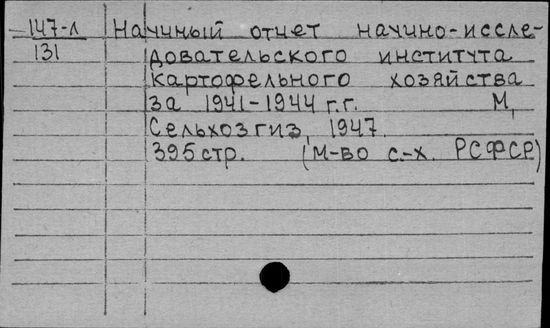 147-л Научный отчет научно-иссле-
131 довательского института
картофельного хозяйства
за 1941-1944 г.г. М,
Сельхозгиз, 1947.
395 стр. (М-во с.-х. РСФСР)